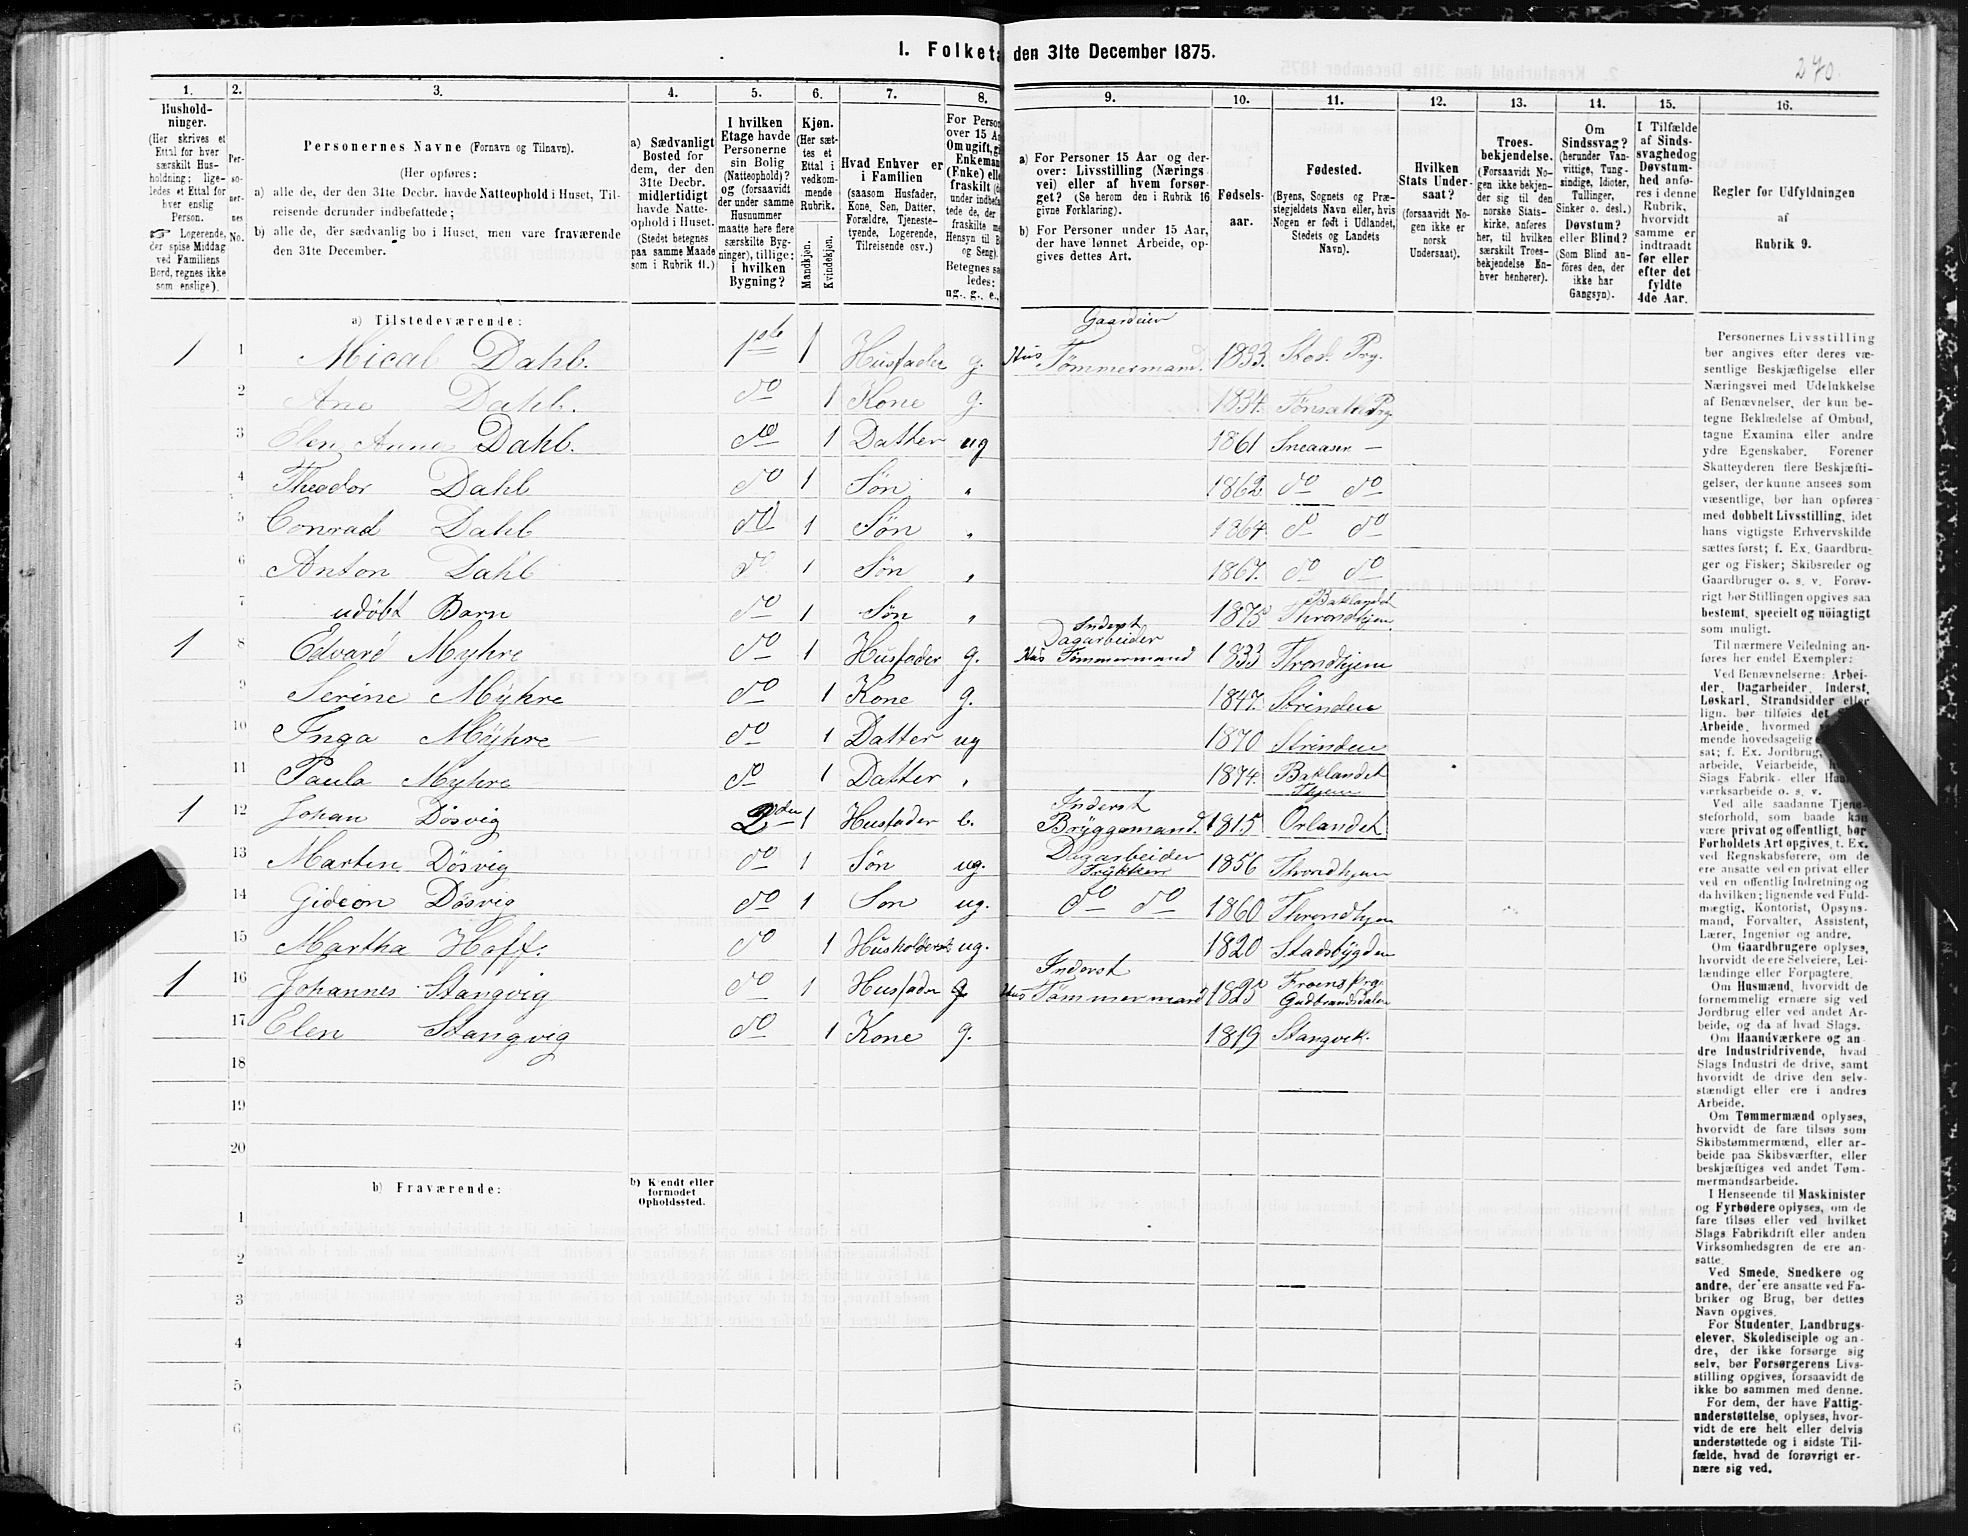 1. Folketæ den 31te December 1875.
270.
1. 2. 3. 4. 5. 6. 7. 8. 9. 10. 11. 12. 13. 14. 15. 16.
Hushold-
ninger.
(Her skrives et
Ettal for hver
særskilt Hus-
holdning; lige-
ledes et Ettal for
hver enslig
Person.
☞ Logerende,
der spise Middag
ved Familiens
Bord, regnes ikke
som enslige).
Per-
so-
ner-
nes
No.
Personernes Navne (Fornavn og Tilnavn).
(Her opføres:
a) alle de, der den 31te Decbr. havde Natteophold i Huset, Til-
reisende derunder indbefattede;
b) alle de, der sædvanlig bo i Huset, men vare fraværende
den 31te December.
a) Sædvanligt
Bosted for
dem, der den
31te Decbr.
midlertidigt
havde Natte-
ophold i Huset.
(Stedet betegnes
paa samme Maade
som i Rubrik 11.)
I hvilken
Etage havde
Personerne
sin Bolig
(Natteophold)?
og (forsaavidt
der under samme
Husnummer
maatte here flere
særskilte Byg-
ninger), tillige:
i hvilken
Bygning?
Kjøn.
(Her sæt-
tes et
Ettal i
vedkom-
mende
Rubrik.
Mandkjøn.
Kvindekjøn.
Hvad Enhver er
i Familien
(saasom Husfader,
Kone, Søn, Datter,
Forældre, Tjeneste-
tyende, Logerende,
Tilreisende osv.)
For Person
over 15 Aa
Om ugift, gi
Enkeman
(Enke) elle
fraskilt (d
under indbefa
tede de, der
fraskilte m
Hensyn til B
og Seng).
Betegnes sa
ledes:
ug., g., e.,
a) For Personer 15 Aar og der-
over: Livsstilling (Nærings
vei) eller af hvem forsør-
get? (Se herom den i Rubrik 16
givne Forklaring).
b) For Personer under 15 Aar,
der have lønnet Arbeide, op-
gives dettes Art.
Fødsels-
aar.
Fødested.
(Byens, Sognets og Præ-
stegjeldets Navn eller, hvis
Nogen er født i Udlandet,
Stedets og Landets
Navn).
Hvilken
Stats Under-
saat?
(forsaavidt No-
gen ikke er
norsk
Undersaat).
Troes-
bekjendelse.
(Forsaavidt No-
gen ikke bekjen-
der sig til den
norske Stats-
kirke, anføres
her, til hvilken
særskilt Troes-
bekjendelse En-
hver henhører).
Om
Sindssvag?
(herunder Van-
vittige, Tung-
sindige, Idioter,
Tullinger,
Sinker o. desl.)
Døvstum?
eller Blind?
(Som Blind an-
føres den, der
ikke har
Gangsyn).
I Tilfælde
af Sinds-
svaghed og
Døvstum-
hed anfø-
res i denne
Rubrik,
hvorvidt
samme er
indtraadt
før eller
efter det
fyldte
4de Aar.
Regler for Udfyldningen
af
Rubrik 9.
a) Tilstedeværende:
1 1 Mical Dahl. 1ste 1 Husfader g. Gaardeier Hus Tømmermand. 1833. Stod. Prg.
2 Ane Dahl. do 1 Kone g. 1834. Prg
3 Elen Anne Dahl. do 1 Datter ug 1861 Sneaasen —
4 Theodor Dahl do 1 Søn " 1862 do do
5 Conrad Dahl do 1 Søn " 1864 do do
6 Anton Dahl do 1 Søn " 1867. do do
7 udøbt Barn do 1 Søn " 1875 Baklandet Throndhjem.
1 8 Edvard Myhre do 1 Husfader g. Inderst Dagarbeider Hus Tømmermand 1833 Throndhjem
9 Serine Myhre do 1 Kone g. 1847. Strinden
10 Inga Myhre do 1 Datter ug 1870 Strinden
11 Paula Myhre do 1 Datter " 1874. Baklandet Thjem
1 12 Johan Døsvig 2den 1 Husfader e. Inderst Bryggemand. 1815 Orlandet
13 Martin Døsvig do 1 Søn ug. Dagarbeider 1856 Throndhjem
14 Gideon Døsvig do 1 Søn ug. do do 1860 Throndhjem
15 Martha Hoff. do 1 Husholderske ug. 1820 Stadsbygden
1 16 Johannes Stangvig do 1 Husfader g. Inderst Hus Tømmermand 1825 Froens Prg. Gudbrandsdalen
17 Elen Stangvig do 1 Kone g. 1819 Stangvik.
18
19
20
b) Fraværende:
b) Kjendt eller
formodet
Opholdssted.
1
2
3
4
5
6
Personernes Livsstilling
bør angives efter deres væ-
sentlige Beskjæftigelse eller
Næringsvei med Udelukkelse
af Benævnelser, der kun be-
tegne Beklædelse af Ombud,
tagne Examina eller andre
ydre Egenskaber. Forener
Skatteyderen flere Beskjæfti-
gelser, der kunne ansees som
væsentlige, bør han opføres
med dobbelt Livsstilling, idet
hans vigtigste Erhvervskilde
sættes først; f. Ex. Gaardbru-
ger og Fisker; Skibsreder og
Gaardbruger o. s. v. Forøv-
rigt bør Stillingen opgives saa
bestemt, specielt og nöiagtigt
som muligt.
Til nærmere Veiledning an-
føres her endel Exempler:
Ved Benævnelserne: Arbei-
der, Dagarbeider, Inderst,
Løskarl, Strandsidder eller
lign. bør tilføies det
Arbeide, hvormed
mende hovedsagelig
sat; f. Ex. Jordbrug
arbeide, Veiarbeide,
Slags Fabrik- eller Haa
værksarbeide o. s. v.
Ved alle saadanne Tjene-
steforhold, som baade kan
være privat og offentligt, bør
Forholdets Art opgives, t. Ex.
ved Regnskabsførere, om de
ere ansatte ved en privat eller
ved en offentlig Indretning og
da hvilken; lignende ved Fuld-
mægtig, Kontorist, Opsyns-
mand, Forvalter, Assistent,
Lærer, Ingeniør og andre.
Om Gaardbrugere oplyses,
hvorvidt de ere Selveiere, Lei-
lændinge eller Forpagtere.
Om Husmænd, hvorvidt de
fornemmelig ernære sig ved
Jordbrug eller ved andet Ar-
beide, og da af hvad Slags.
Om Haandværkere og an-
dre Industridrivende, hvad
Slags Industri de drive, samt
hvorvidt de drive den selv-
stændigt eller ere i andres
Arbeide.
Om Tømmermænd oplyses,
hvorvidt de fare tilsøs som
Skibstømmermænd, eller ar-
beide paa Skibsværfter, eller
beskjæftiges ved andet Tøm-
mermandsarbeide.
I Henseende til Maskinister
og Fyrbødere oplyses, om de
fare tilsøs eller ved hvilket
Slags Fabrikdrift eller anden
Virksomhedsgren de ere an-
satte.
Ved Smede, Snedkere og
andre, der ere ansatte ved Fa-
briker og Brug, bør dettes
Navn opgives.
For Studenter, Landbrugs-
elever, Skoledisciple og an-
dre, der ikke forsørge sig
selv, bør Forsørgerens Livs-
stilling opgives, forsaavidt de
ikke bo sammen med denne.
For dem, der have Fattig-
understøttelse, oplyses, hvor-
vidt de ere helt eller delvis
understøttede og i sidste Til-
fælde, hvad de forøvrigt er-
nære sig ved.